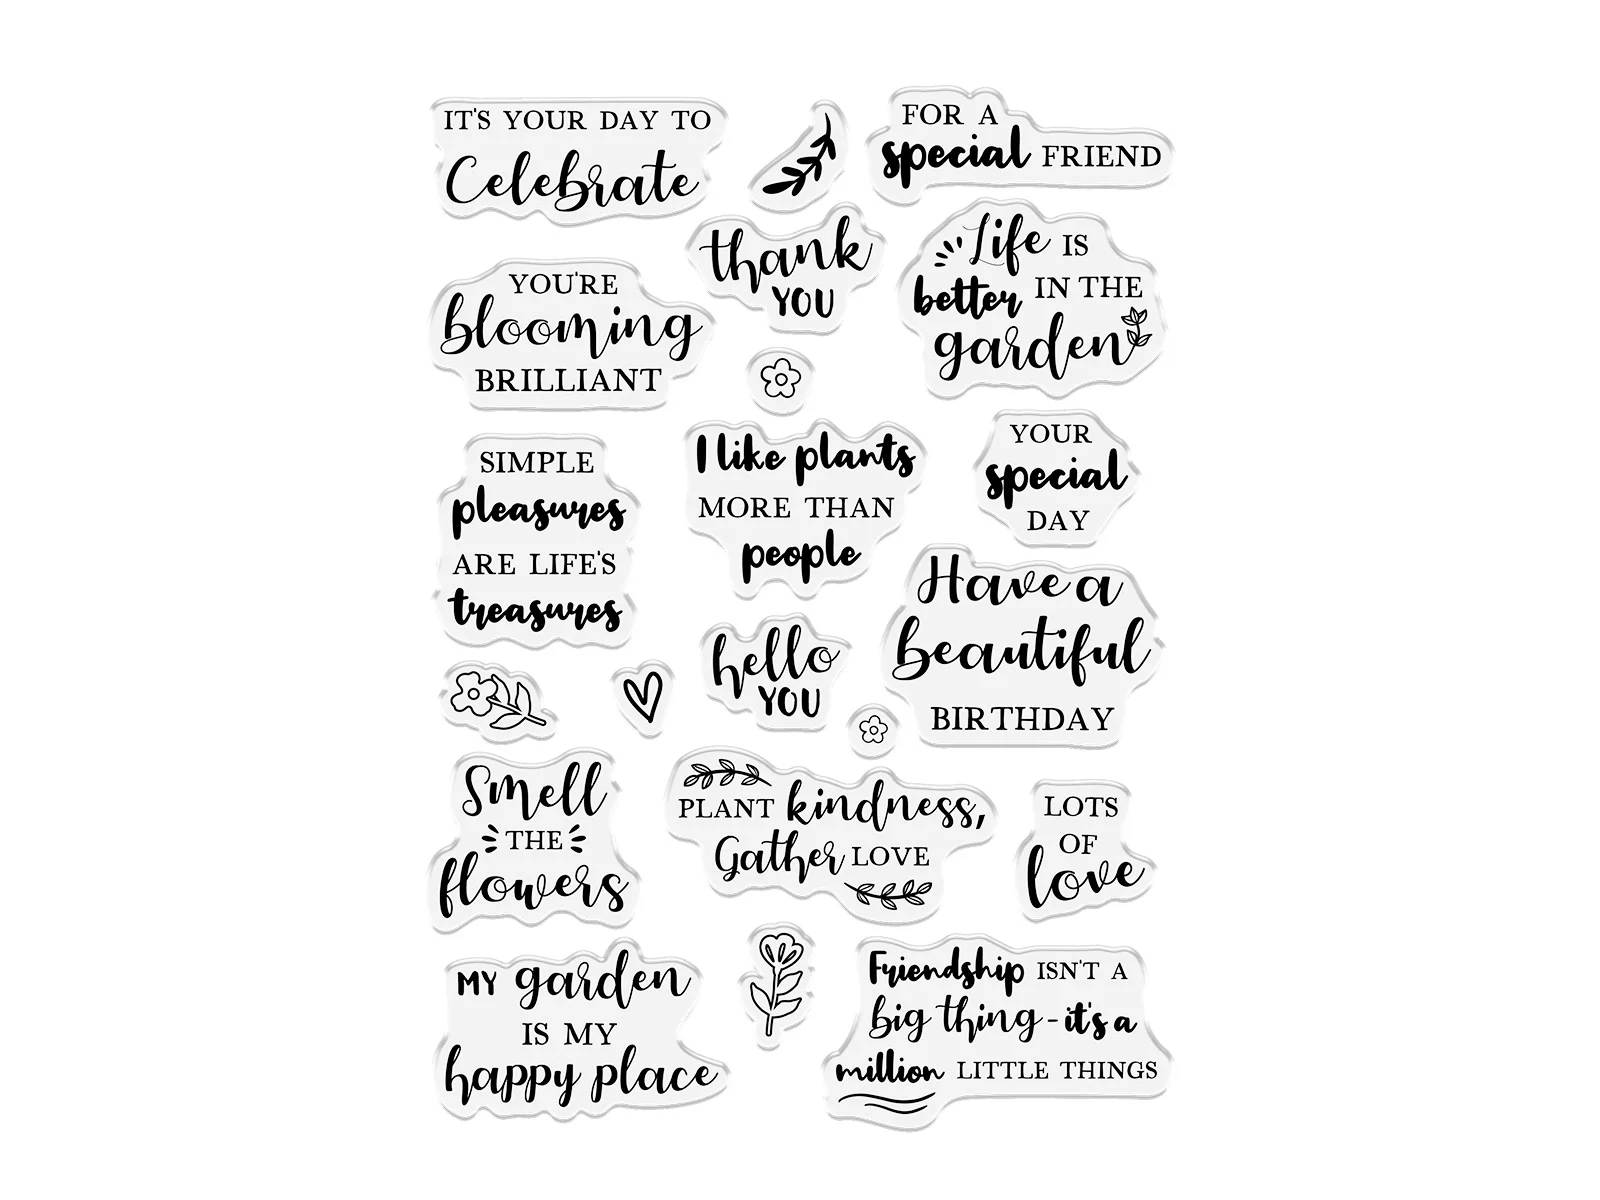 IT'S YOUR DAY TO
Celebrate
FOR A
special FRIEND
thank
YOU
Life IS
better IN THE
garden
YOU'RE
blooming
BRILLIANT
SIMPLE
pleasures
ARE LIFE'S
treasures
I like plants
MORE THAN
people
YOUR
special
DAY
Have a
beautiful
BIRTHDAY
hello
YOU
Smell
THE
flowers
PLANT kindness,
Gather LOVE
LOTS
OF
love
MY garden
IS MY
happy place
Friendship ISN'T A
big thing - it's a
million LITTLE THINGS